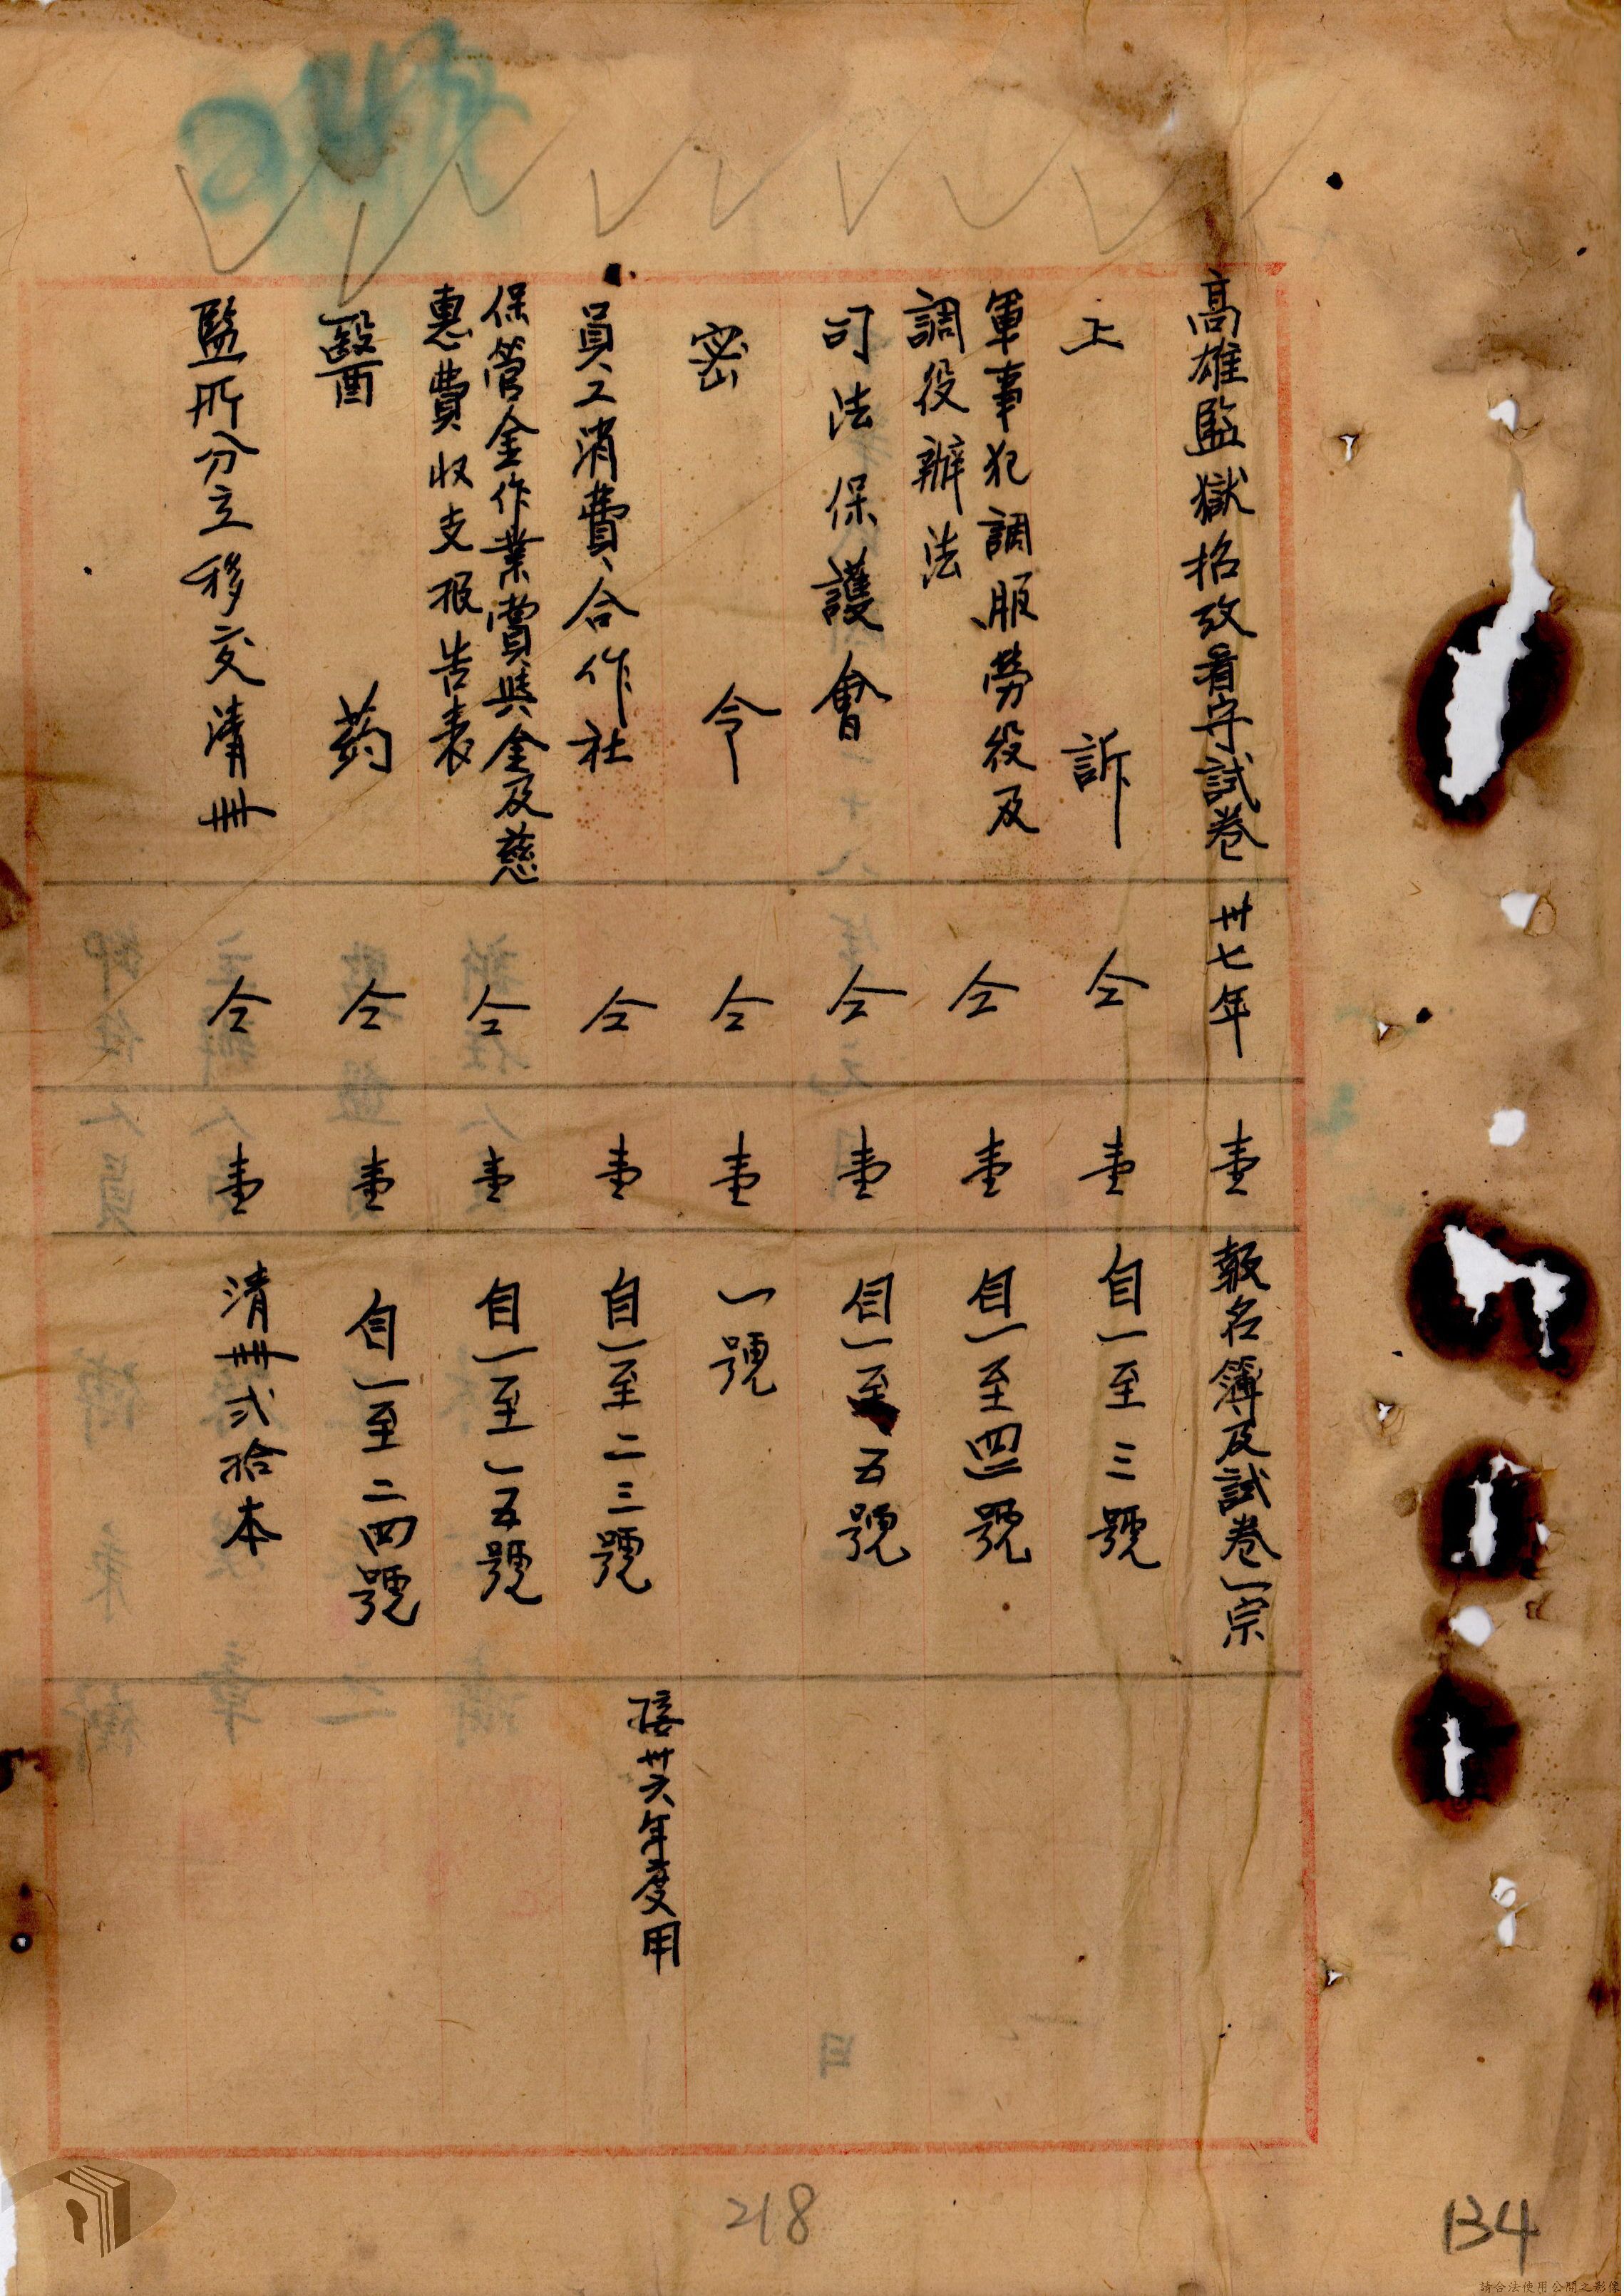 高雄監獄招攷看守試卷 卅七年 壹 報名簿及試卷一宗
上訴 仝 壹 自一至三號
軍事犯調服勞役及
調役辦法 仝 壹 自一至四一號
司法保護會 仝 壹 自一至五號
密令 仝 壹 一號
員工消費合作社 仝 壹 自一至二三號 接卅六年度用
保管金作業賞與金及慈
惠費收支報告表 仝 壹 自一至一五號
醫药 仝 壹 自一至二四號
監所分立移交清冊 仝 壹 清冊弍拾本
218
134
請合法使用公開之影像